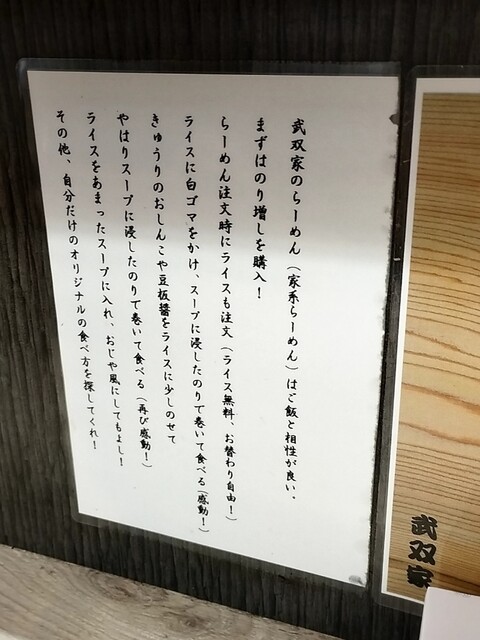 武双家のらーめん（家系らーめん）はご飯と相性が良い。
まずはのり増しを購入！
らーめん注文時にライスも注文（ライス無料、お替わり自由！）
ライスに白ゴマをかけ、スープに浸したのりで巻いて食べる（感動！）
きゅうりのおしんこや豆板醤をライスに少しのせて
やはりスープに浸したのりで巻いて食べる（再び感動！）
ライスをあまったスープに入れ、おじや風にしてもよし！
その他、自分だけのオリジナルの食べ方を探してくれ！
武双家